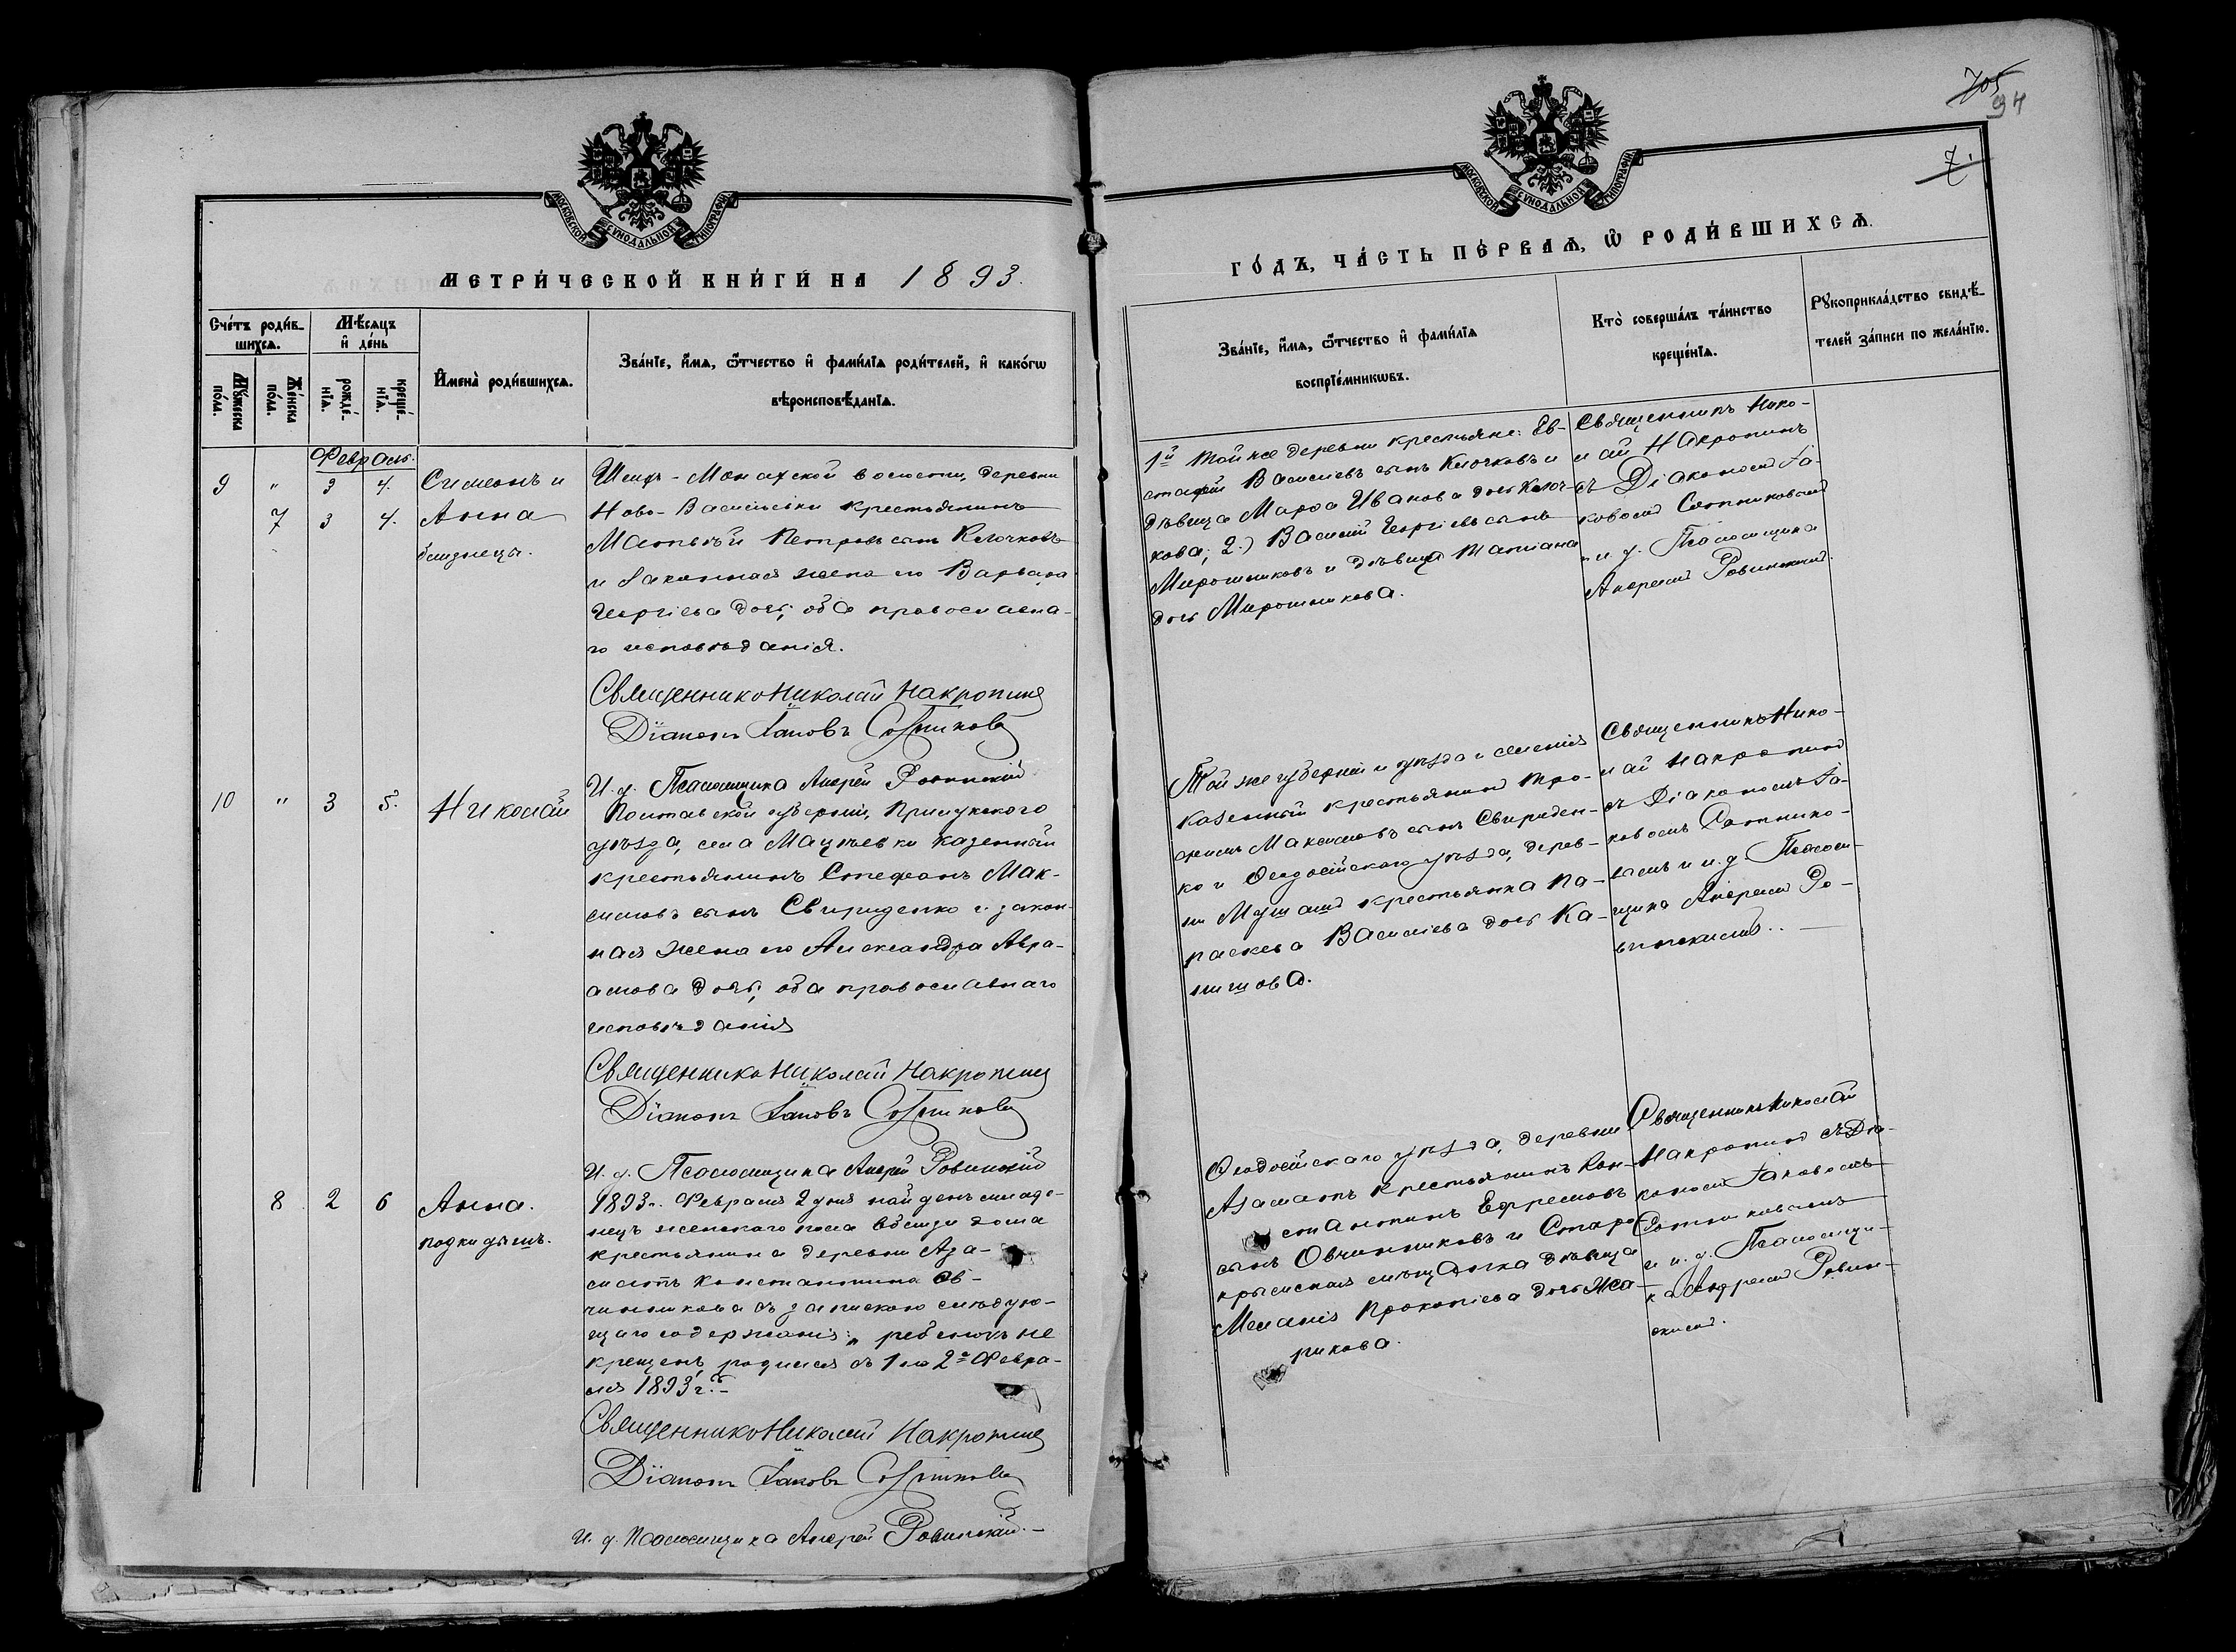 МОСКОВСКОЙ СѴНОДАЛЬНОЙ ТИПОГРАФІИ
МЕТРИ́ЧЕСКОЙ КНИ́ГИ НА 1893.
Сче́тъ роди́в-
шихсѧ.
Мѣ́сяцъ
и҆ де́нь
Мꙋ́жеска
по́ла.
Же́нска
по́ла.
рожде́-
нїѧ.
креще́-
нїѧ.
И҆мена̀ роди́вшихсѧ.
Зва́нїе, и҆́мѧ, ѻ҆́тчество и҆ фами́лїѧ роди́телей, и҆ како́гѡ
вѣроисповѣ́данїѧ.
Февраль.
9 " 3 4. Симеонъ и
7 3 4. Анна
близнецы.
Шейхъ-Монахской волости, деревни
Ново-Васильевки крестьянинъ
Матвѣй Петровъ сынъ Клочковъ
и законная жена его Варвара
Георгіева дочь; оба православна-
го исповѣданія.
Священникъ Николай Накропинъ
Діаконъ Іаковъ Сотниковъ
И. д. Псаломщика Андрей Ровинскій
10 " 3 5. Николай
Полтавской губерніи, Прилукского
уѣзда, села Мацѣевки казенный
крестьянинъ Стефанъ Мак-
симовъ сынъ Свириденко и закон-
ная жена его Александра Авра-
амова дочь; оба православнаго
исповѣданія
Священникъ Николай Накропинъ
Діаконъ Іаковъ Сотниковъ
И. д. Псаломщика Андрей Ровинскій
8 2 6 Анна.
подкидышъ.
1893 г. Февраля 2 дня найденъ младе-
нецъ женскаго пола вблизи дома
крестьянина деревни Аза-
матъ Константина Ов-
чинникова съ запискою слѣдую-
щаго содержанія: „ребенокъ не
крещенъ, родился съ 1 на 2е Февра-
ля 1893 г."-
Священникъ Николай Накропинъ
Діаконъ Іаковъ Сотниковъ
И. д. Псаломщика Андрей Ровинскій.-
705
94
7.
МОСКОВСКОЙ СѴНОДАЛЬНОЙ ТИПОГРАФІИ
ГО́ДЪ, ЧА́СТЬ ПЕ́РВАѦ, Ѡ҆ РОДИ́ВШИХСѦ.
Зва́нїе, и҆́мѧ, ѻ҆́тчество и҆ фами́лїѧ
воспрїе́мникѡвъ.
Кто̀ соверша́лъ та́инство
креще́нїѧ.
Рꙋкоприкла́дство свидѣ́-
телей за́писи по жела́нїю.
1й Той же деревни крестьяне: Ев-
стафій Васильевъ сынъ Клочковъ и
дѣвица Марфа Иванова дочь Клоч-
кова; 2.) Василій Георгіевъ сынъ
Мирошниковъ и дѣвица Татіана
дочь Мирошникова.
Священникъ Нико-
лай Накропинъ
съ Діакономъ Іа-
ковомъ Сотниковымъ
и и. д. Псаломщика
Андреемъ Ровинскимъ.
Той же губерніи и уѣзда и селенія
казенный крестьянинъ Тро-
фимъ Максимовъ сынъ Свириден-
ко и Ѳеодосійскаго уѣзда, дерев-
ни Мушашъ крестьянка Па-
раскева Васильева дочь Ка-
лишова.
Священникъ Нико-
лай Накропинъ
съ Діакономъ Іа-
ковомъ Сотнико-
вымъ и и. д. Псалом-
щика Андреемъ Ро-
винскимъ..-
Ѳеодосійскаго уѣзда, деревни
Азаматъ крестьянинъ Кон-
стантинъ Ефремовъ
сынъ Овчинниковъ и Старо-
крымская мѣщанка дѣвица
Меланія Прокопіева дочь Жа-
рикова.
Священникъ Николай
Накропинъ съ Діа-
кономъ Іаковомъ
Сотниковымъ
и и. д. Псаломщи-
ка Андреемъ Ровин-
скимъ.